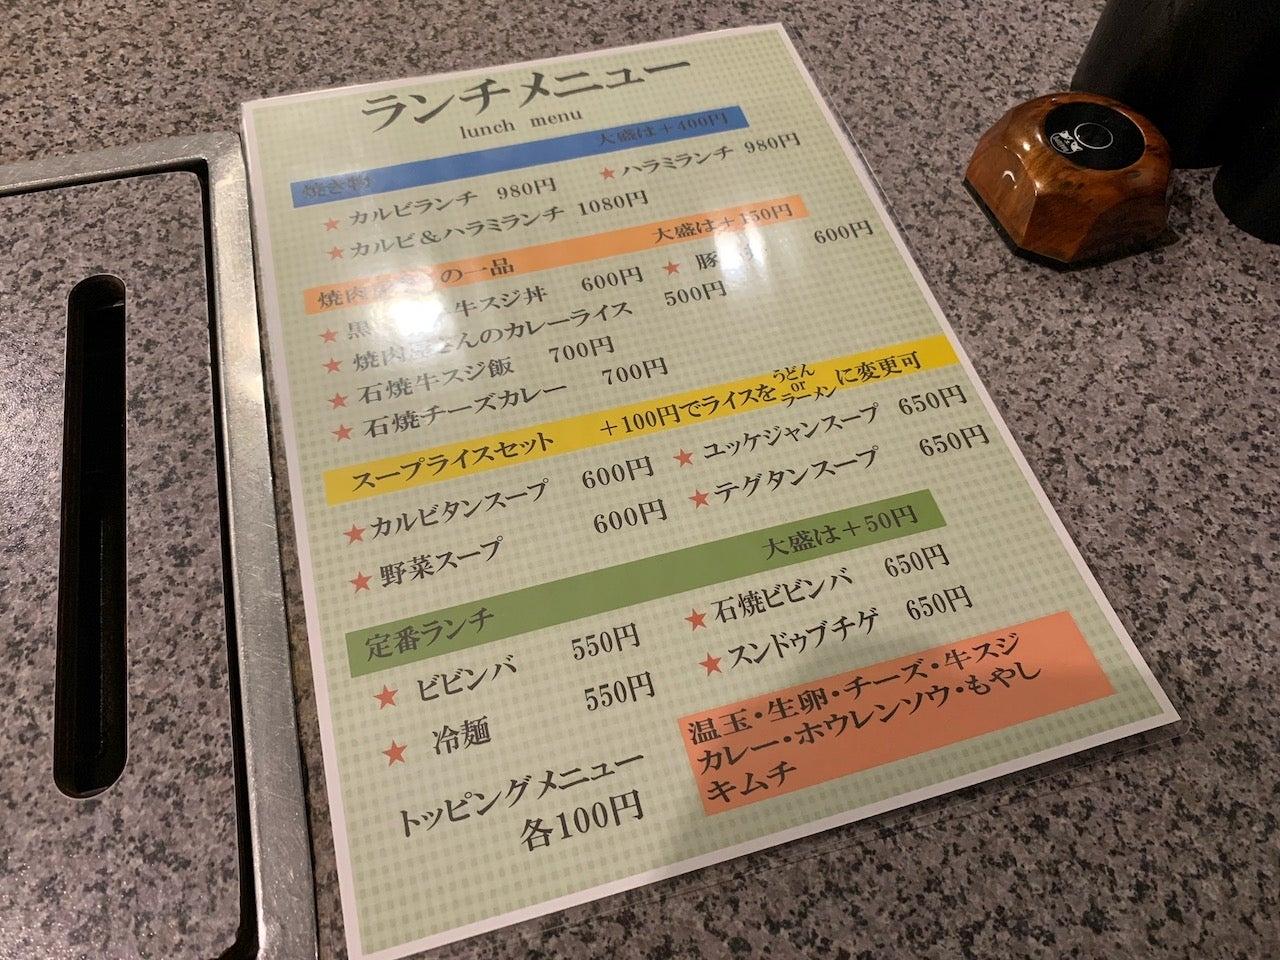 ランチメニュー
lunch menu
焼き物 大盛は＋400円
★カルビランチ 980円 ★ハラミランチ 980円
★カルビ＆ハラミランチ 1080円
焼肉 の一品 大盛は＋150円
★黒 牛スジ丼 600円 ★豚 600円
★焼肉屋さんのカレーライス 500円
★石焼牛スジ飯 700円
★石焼チーズカレー 700円
スープライスセット ＋100円でライスをうどんorラーメンに変更可
★カルビタンスープ 600円 ★ユッケジャンスープ 650円
★野菜スープ 600円 ★テグタンスープ 650円
定番ランチ 大盛は＋50円
★ビビンバ 550円 ★石焼ビビンバ 650円
★冷麺 550円 ★スンドゥブチゲ 650円
トッピングメニュー
各100円
温玉・生卵・チーズ・牛スジ
カレー・ホウレンソウ・もやし
キムチ